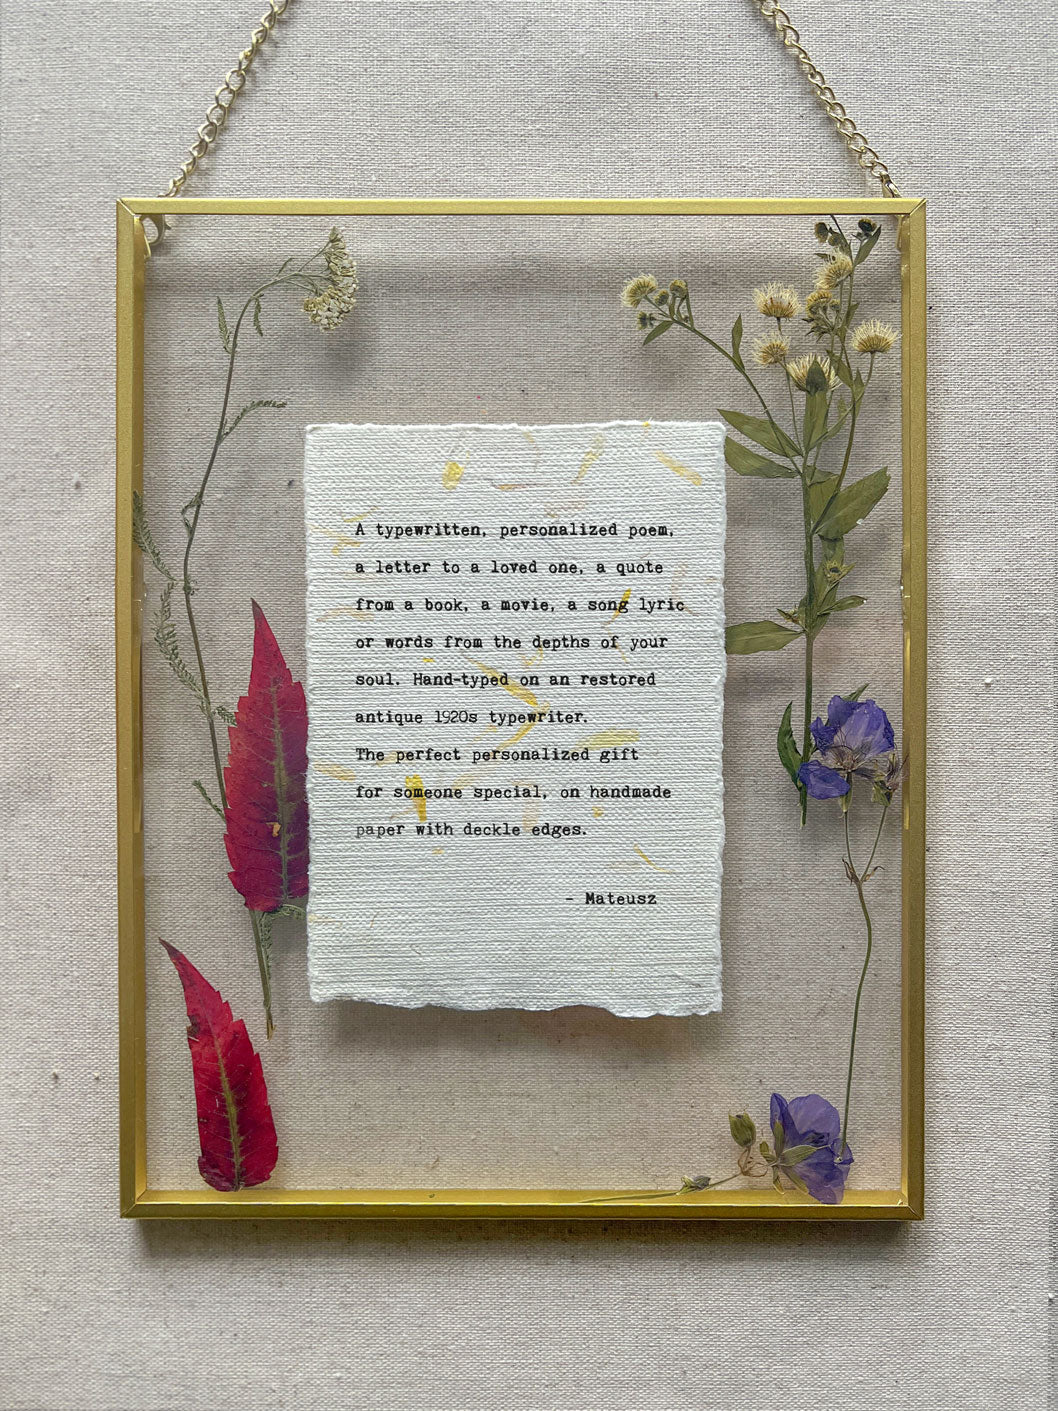 A typewritten, personalized poem,
a letter to a loved one, a quote
from a book, a movie, a song lyric
or words from the depths of your
soul. Hand-typed on an restored
antique 1920s typewriter.
The perfect personalized gift
for someone special, on handmade
paper with deckle edges.
- Mateusz